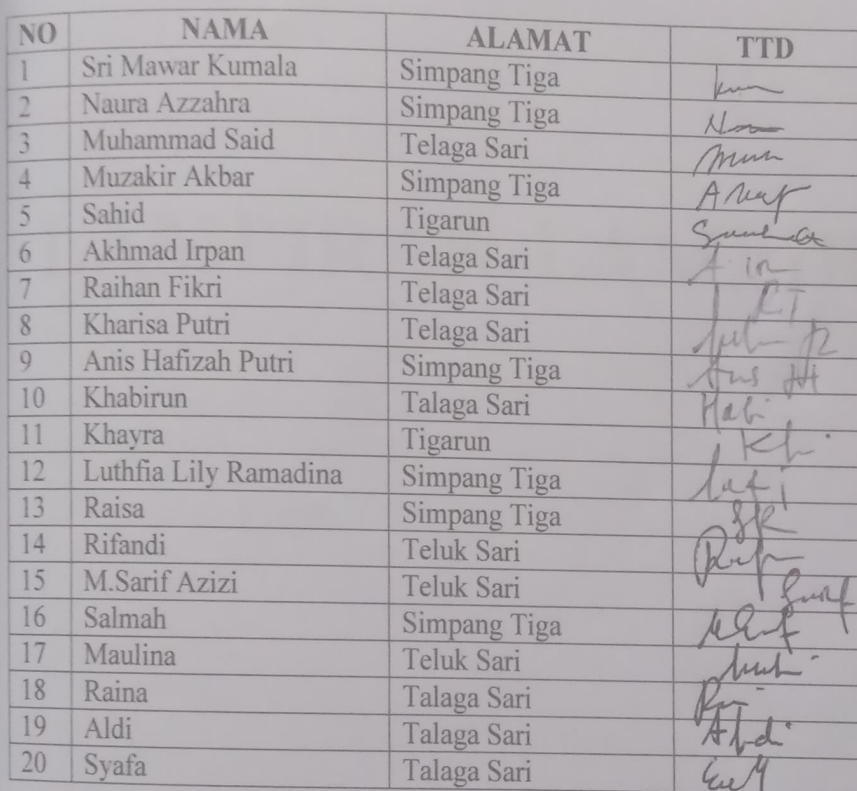 NO NAMA ALAMAT TTD
1 Sri Mawar Kumala Simpang Tiga
2 Naura Azzahra Simpang Tiga
3 Muhammad Said Telaga Sari
4 Muzakir Akbar Simpang Tiga
5 Sahid Tigarun
6 Akhmad Irpan Telaga Sari
7 Raihan Fikri Telaga Sari
8 Kharisa Putri Telaga Sari
9 Anis Hafizah Putri Simpang Tiga
10 Khabirun Talaga Sari
11 Khayra Tigarun
12 Luthfia Lily Ramadina Simpang Tiga
13 Raisa Simpang Tiga
14 Rifandi Teluk Sari
15 M.Sarif Azizi Teluk Sari
16 Salmah Simpang Tiga
17 Maulina Teluk Sari
18 Raina Talaga Sari
19 Aldi Talaga Sari
20 Syafa Talaga Sari